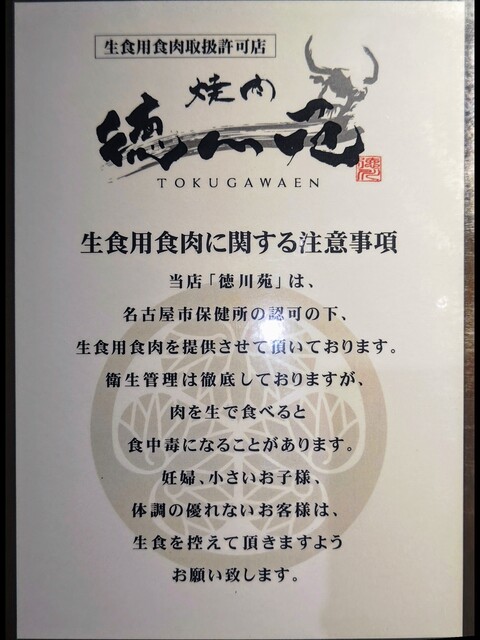 生食用食肉取扱許可店
焼肉
徳川苑
TOKUGAWAEN
生食用食肉に関する注意事項
当店「徳川苑」は、
名古屋市保健所の認可の下、
生食用食肉を提供させて頂いております。
衛生管理は徹底しておりますが、
肉を生で食べると
食中毒になることがあります。
妊婦、小さいお子様、
体調の優れないお客様は、
生食を控えて頂きますよう
お願い致します。